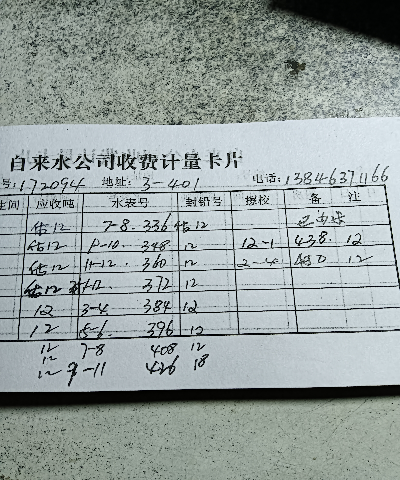 自来水公司收费计量卡片
号:172094 地址: 3-401 电话:13846371166
生间 应收吨 水表号 封铅号 擦检 备 注
估12 7-8. 336 估12
估12 9-10. 348 12 12-1 438. 12
估12 11-12 360 12 2-4 450 12
估12 372 12
12 3-4 384 12
12 5-6. 396 12
12 7-8 408 12
12 9-11 426 18